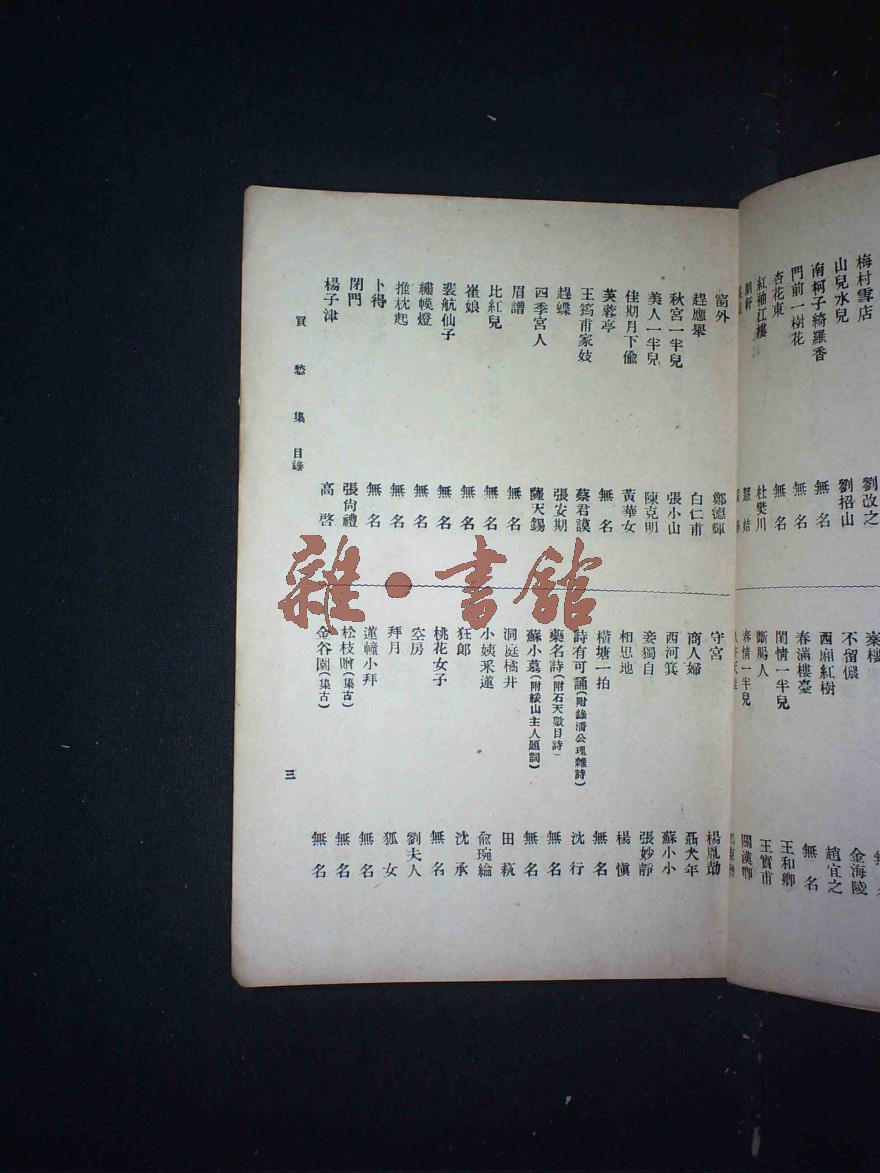 梅村雪店 劉改之
山兒水兒 劉招山
南柯子綺羅香 無名
門前一樹花 無名
杏花東 無名
紅袖江樓 杜樊川
秦樓
不留儂 金海陵
西廂紅樹 趙宜之
春滿樓臺 無名
閨情一半兒 王和卿
斷腸人 王實甫
春情一半兒 關漢卿
窗外 鄭德輝
趕應舉 白仁甫
秋宮一半兒 張小山
美人一半兒 陳克明
佳期月下偸 黃華女
芙蓉亭 無名
王筠甫家妓 蔡君謨
趕蝶 張安期
四季宮人 薩天錫
眉譜 無名
比紅兒 無名
崔娘 無名
裴航仙子 無名
繡幙燈 無名
推枕起 無名
卜得 無名
閉門 張尙禮
楊子津 高啓
守宮 楊胤劼
商人婦 聶大年
西河箕 蘇小小
妾獨自 張妙靜
相思地 楊愼
橫塘一拍 無名
詩有可誦(附錄潘公理雜詩) 沈行
藥名詩(附石天數目詩) 無名
蘇小墓(附綏山主人題詞) 無名
洞庭橘井 田萟
小姨釆蓮 兪琬綸
狂郎 沈承
桃花女子 無名
空房 劉夫人
拜月 狐女
蓮幢小拜 無名
松枝贈(集古) 無名
金谷園(集古) 無名
買愁集 目錄
三
雜·書館